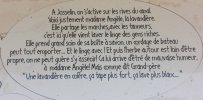 A Josselin, on s'active sur les rives du canal.
Voici justement madame Angèle, la lavandière.
Elle partage les marches, avec les tanneurs,
c'est ici qu'elle vient laver le linge des gens riches.
Elle prend grand soin de sa boîte à savon, un cordage de bateau
peut tout emporter... Et le linge avec ! Et puis l'herbe autour est loin d'être
propre, on ne peut guère s'y asseoir ! Ça lui arrive d'être de mauvaise humeur,
à madame Angèle ! Mais comme dit Grand-père :
"Une lavandière en colère, ça tape plus fort, ça lave plus blanc..."